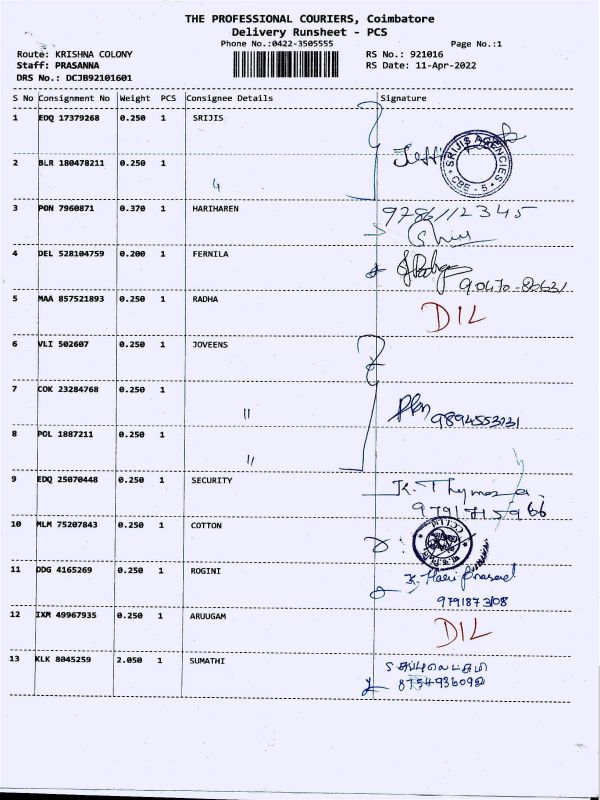 THE PROFESSIONAL COURIERS, Coimbatore
Delivery Runsheet - PCS
Phone No.:0422-3505555 Page No.:1
Route: KRISHNA COLONY RS No.: 921016
Staff: PRASANNA RS Date: 11-Apr-2022
DRS No.: DCJB92101601
S No Consignment No Weight PCS Consignee Details Signature
1 EDQ 17379268 0.250 1 SRIJIS
SRIJIS AGENCIES
CBE - 5
2 BLR 180478211 0.250 1
3 PON 7960871 0.370 1 HARIHAREN 9786112345
4 DEL 528104759 0.200 1 FERNILA
5 MAA 857521893 0.250 1 RADHA DIL
6 VLI 502607 0.250 1 JOVEENS
7 COK 23284768 0.250 1
" 9894553131
8 POL 1887211 0.250 1
"
9 EDQ 25070448 0.250 1 SECURITY K.
10 MLM 75207843 0.250 1 COTTON
11 DDG 4165269 0.250 1 ROGINI K. Hari Prasad
12 IXM 49967935 0.250 1 ARUUGAM DIL
13 KLK 8045259 2.050 1 SUMATHI